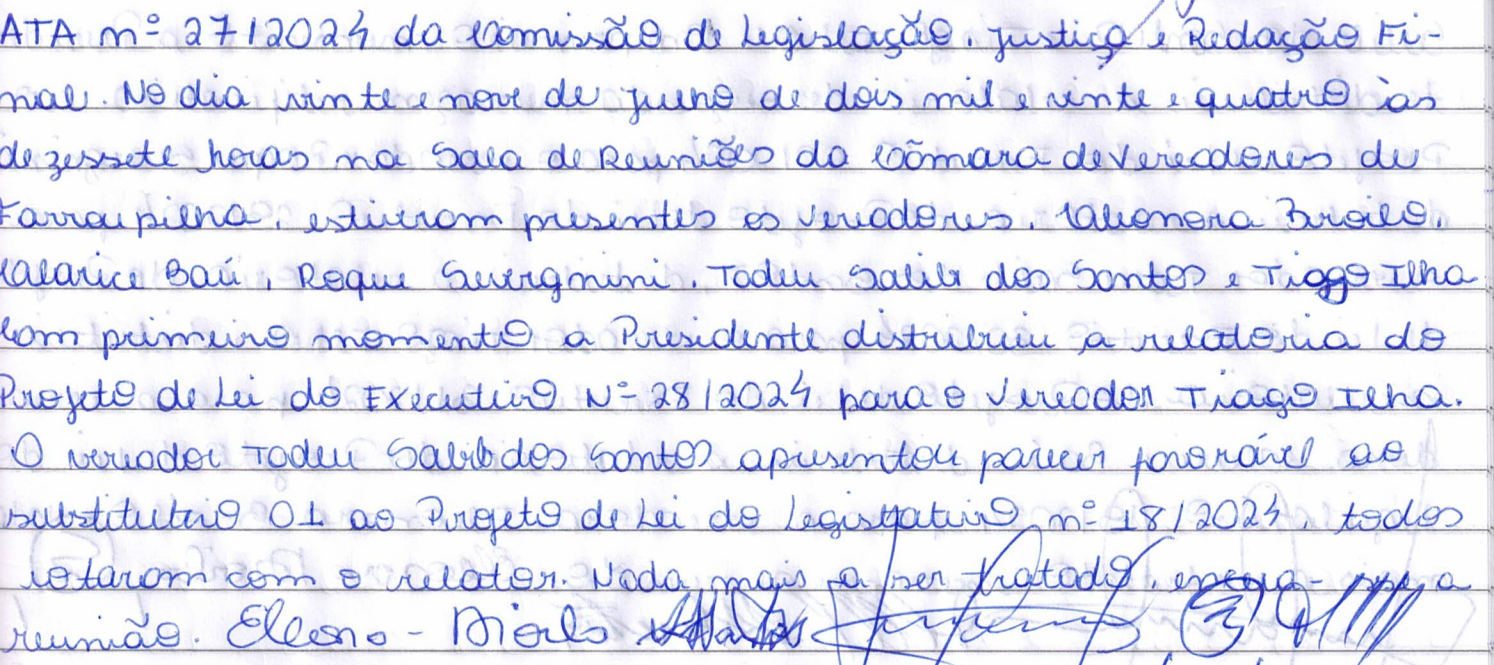 ATA nº 27/2024 da Comissão de Legislação, Justiça e Redação Fi-
nal. No dia vinte e nove de julho de dois mil e vinte e quatro às
dezessete horas na Sala de Reuniões da Câmara de Vereadores de
Farroupilha, estiveram presentes os vereadores, Eleonora Broilo,
Clarice Baú, Roque Severgnini, Tadeu Salib dos Santos e Tiago Ilha
Com primeiro momento a Presidente distribuiu a relatoria do
Projeto de Lei do Executivo Nº 28/2024 para o Vereador Tiago Ilha.
O vereador Tadeu Salib dos Santos apresentou parecer favorável ao
substitutivo 01 ao Projeto de Lei do Legislativo nº 18/2024, todos
votaram com o relator. Nada mais a ser tratado, encerra-se a
reunião.